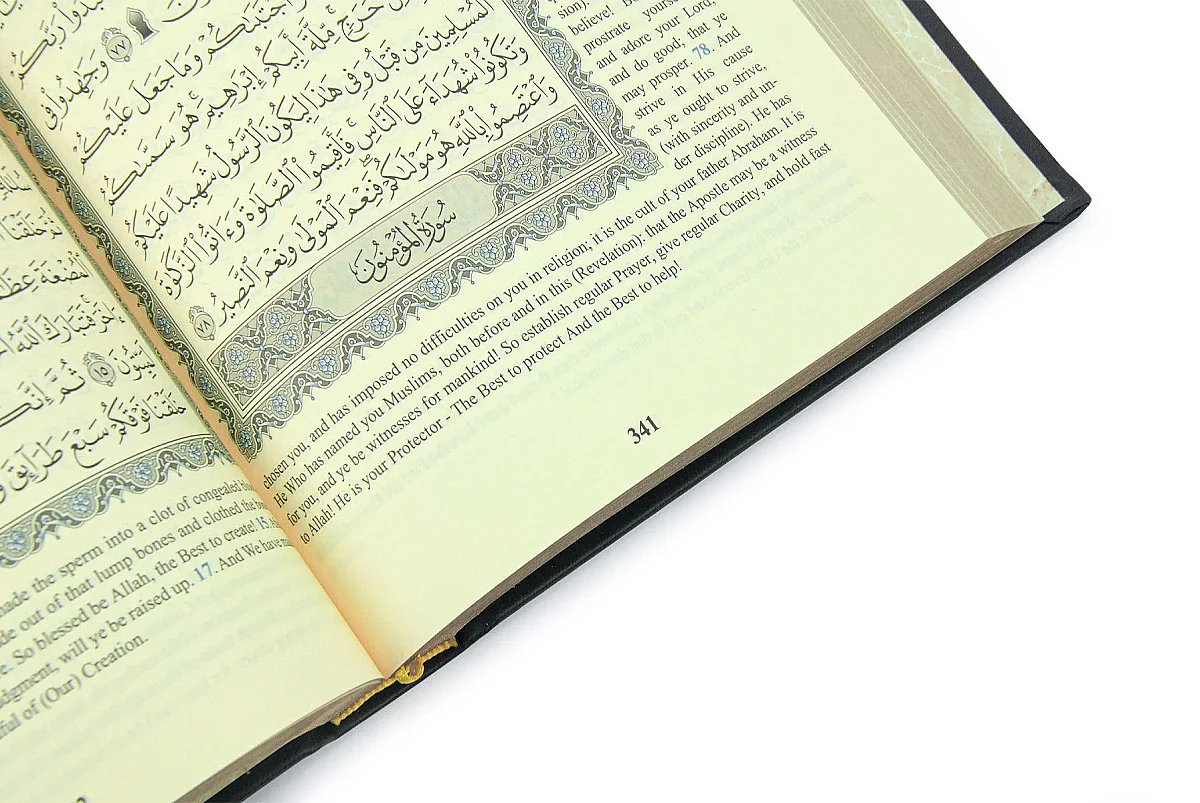 وَجَٰهِدُوا۟ فِى
وَمَا جَعَلَ عَلَيْكُمْ
حَرَجٍ ۚ مِّلَّةَ أَبِيكُمْ إِبْرَٰهِيمَ ۚ هُوَ سَمَّىٰكُمُ
ٱلْمُسْلِمِينَ مِن قَبْلُ وَفِى هَٰذَا لِيَكُونَ ٱلرَّسُولُ شَهِيدًا عَلَيْكُمْ
وَتَكُونُوا۟ شُهَدَآءَ عَلَى ٱلنَّاسِ ۚ فَأَقِيمُوا۟ ٱلصَّلَوٰةَ وَءَاتُوا۟ ٱلزَّكَوٰةَ
وَٱعْتَصِمُوا۟ بِٱللَّهِ هُوَ مَوْلَىٰكُمْ ۖ فَنِعْمَ ٱلْمَوْلَىٰ وَنِعْمَ ٱلنَّصِيرُ ٧٨
سُورَةُ الْمُؤْمِنُونَ
sion).
believe!
prostrate
and adore your Lord;
and do good; that ye
may prosper. 78. And
strive in His cause
as ye ought to strive,
(with sincerity and un-
der discipline). He has
chosen you, and has imposed no difficulties on you in religion; it is the cult of your father Abraham. It is
He Who has named you Muslims, both before and in this (Revelation); that the Apostle may be a witness
for you, and ye be witnesses for mankind! So establish regular Prayer, give regular Charity, and hold fast
to Allah! He is your Protector - The Best to protect And the Best to help!
341
ثُمَّ
سَبْعَ طَرَآئِقَ
made the sperm into a clot of congealed
out of that lump bones and clothed the
So blessed be Allah, the Best to create! 15.
will ye be raised up. 17. And We have
of (Our) Creation.